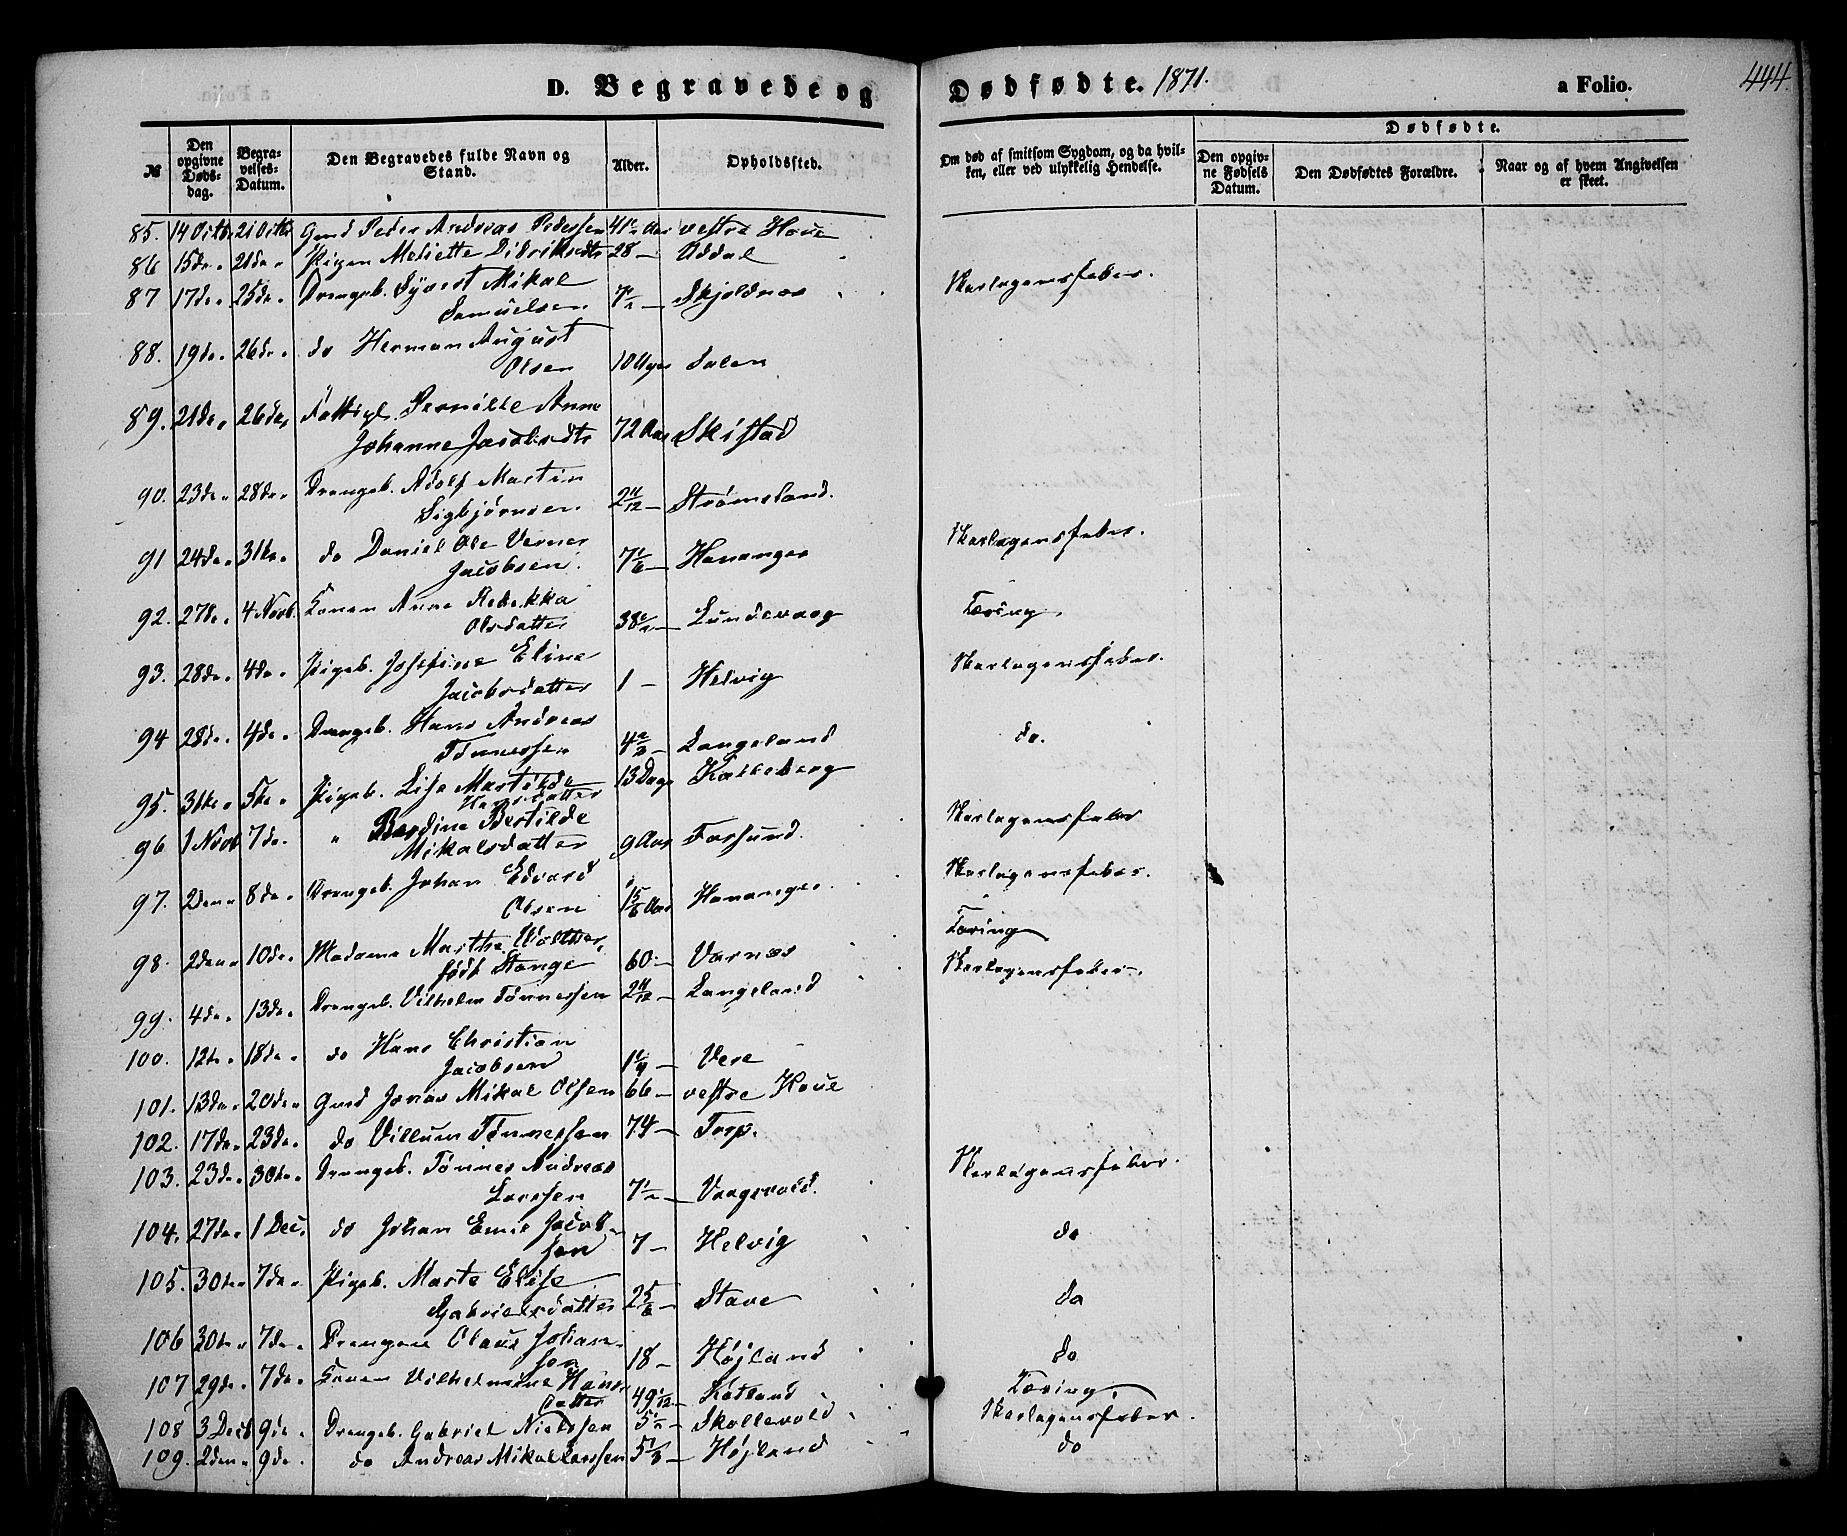 D. Begravede og Dødfødte. 1871. a Folio. 444.
№ Den opgivne Dødsdag. Begravelses-Datum. Den Begravedes fulde Navn og Stand. Alder. Opholdssted. Om død af smitsom Sygdom, og da hvilken, eller ved ulykkelig Hendelse. Dødfødte. Den opgivne Fødsels Datum. Den Dødfødtes Forældre. Naar og af hvem Angivelsen er skeet.
85. 14 Octbr 21 Octbr Gmd Peder Andreas Pedersen 41 1/2 Aar vestre Houe
86 15de 21de Pigen Meliette Didriksdtr 28 — Uddal
87 17de 25de Drengeb. Syvert Mikal
Samuelsen 7 1/2 — Skjoldnes Skarlagensfeber.
88. 19de 26de do Herman August
Olsen 10 Uger Dalen
89. 21de 26de Fattigl. Pernille Anne
Johanne Jacobsdtr 72 Aar Skistad
90. 23de 28de Drengeb. Adolf Martin
Sigbjørnsen 2 11/12 — Strømsland.
91 24de 31te do Daniel Ole Verner
Jacobsen. 7 1/6 — Hananger Skarlagensfeber.
92. 27de 4 Novb. Konen Anne Rebekka
Olsdatter 38 1/2 — Lundevaag Tæring
93. 28de 4de Pigeb. Josefine Eline
Jacobsdatter 1 — Helvig Skarlagensfeber.
94 28de 4de Drengeb. Hans Andreas
Tønnessen 4 2/3 — Langeland do.
95. 31te 5te Pigeb. Lise Martilde
Hansdatter 13 Dage Kalleberg
96 1 Novb 7de „ Berdine Bertilde
Mikalsdatter 9 Aar Farsund. Skarlagensfeber
97. 2den 8de Drengeb. Johan Edvard
Olsen 1 5/6 Aar Hananger. Skarlagensfeber.
98. 2den 10de Madame Marthe Walther,
født Stange 60 — Varnes Tæring
99. 4de 13de Drengeb. Vilhelm Tønnessen 2 11/12 — Langeland Skarlagensfeber
100. 12te 18de do Hans Christian
Jacobsen 1 1/4 — Vere
101. 13de 20de Gmd Jonas Mikal Olsen 66 — vestre Houe
102. 17de 23de do Villum Tønnessen 74 — Torp.
103. 23de 30te Drengeb. Tønnes Andreas
Larssen 7 1/2 — Vaagsvold. Skarlagensfeber.
104. 27de 1 Dec. do Johan Emil Jacob-
sen 7 — Helvig do
105. 30te 7de Pigeb. Marte Elise
Gabrielsdatter 2 5/6 — Stave do
106 30te 7de Drengen Olaus Johan-
sen 18 — Højland do
107 29de 7de Konen Vilhelmine Hans-
datter 49 1/12 — Kotland Tæring
108 3 Decb 9de Drengeb. Gabriel Nielssen 5 1/2 — Skollevold Skarlagensfeber.
109. 2den 9de do Andreas Mikal Larssen 5 1/3 — Højland do